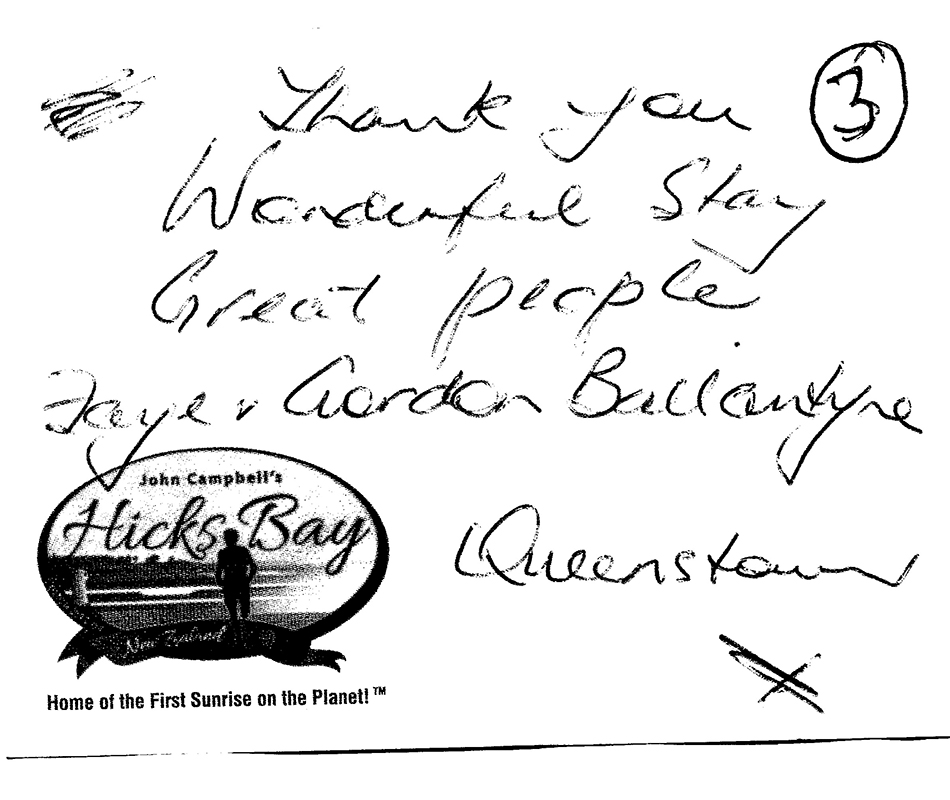 Thank you
3
Wonderful Stay
Great people
Faye & Gordon Ballantyne
John Campbell's
Hicks Bay
New Zealand
Queenstown
Home of the First Sunrise on the Planet! ™